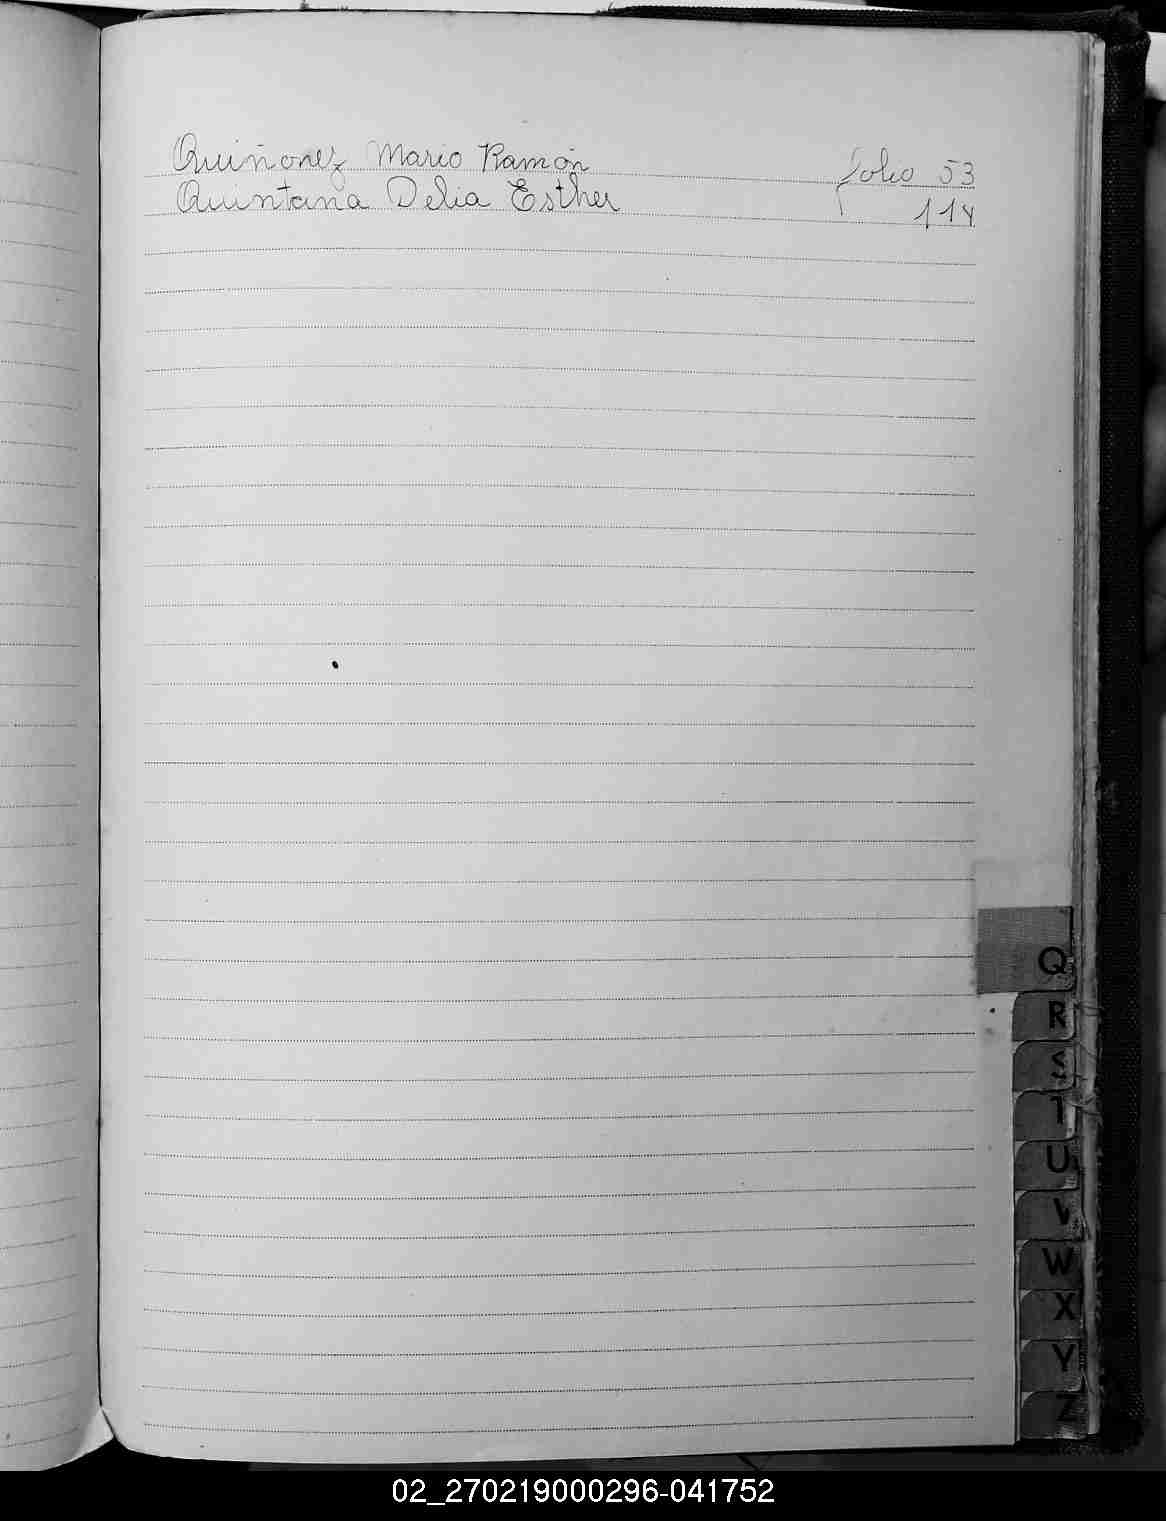 Quiñonez Mario Ramón folio 53
Quintana Delia Esther 114
Q
R
S
T
U
V
W
X
Y
Z
02_270219000296-041752